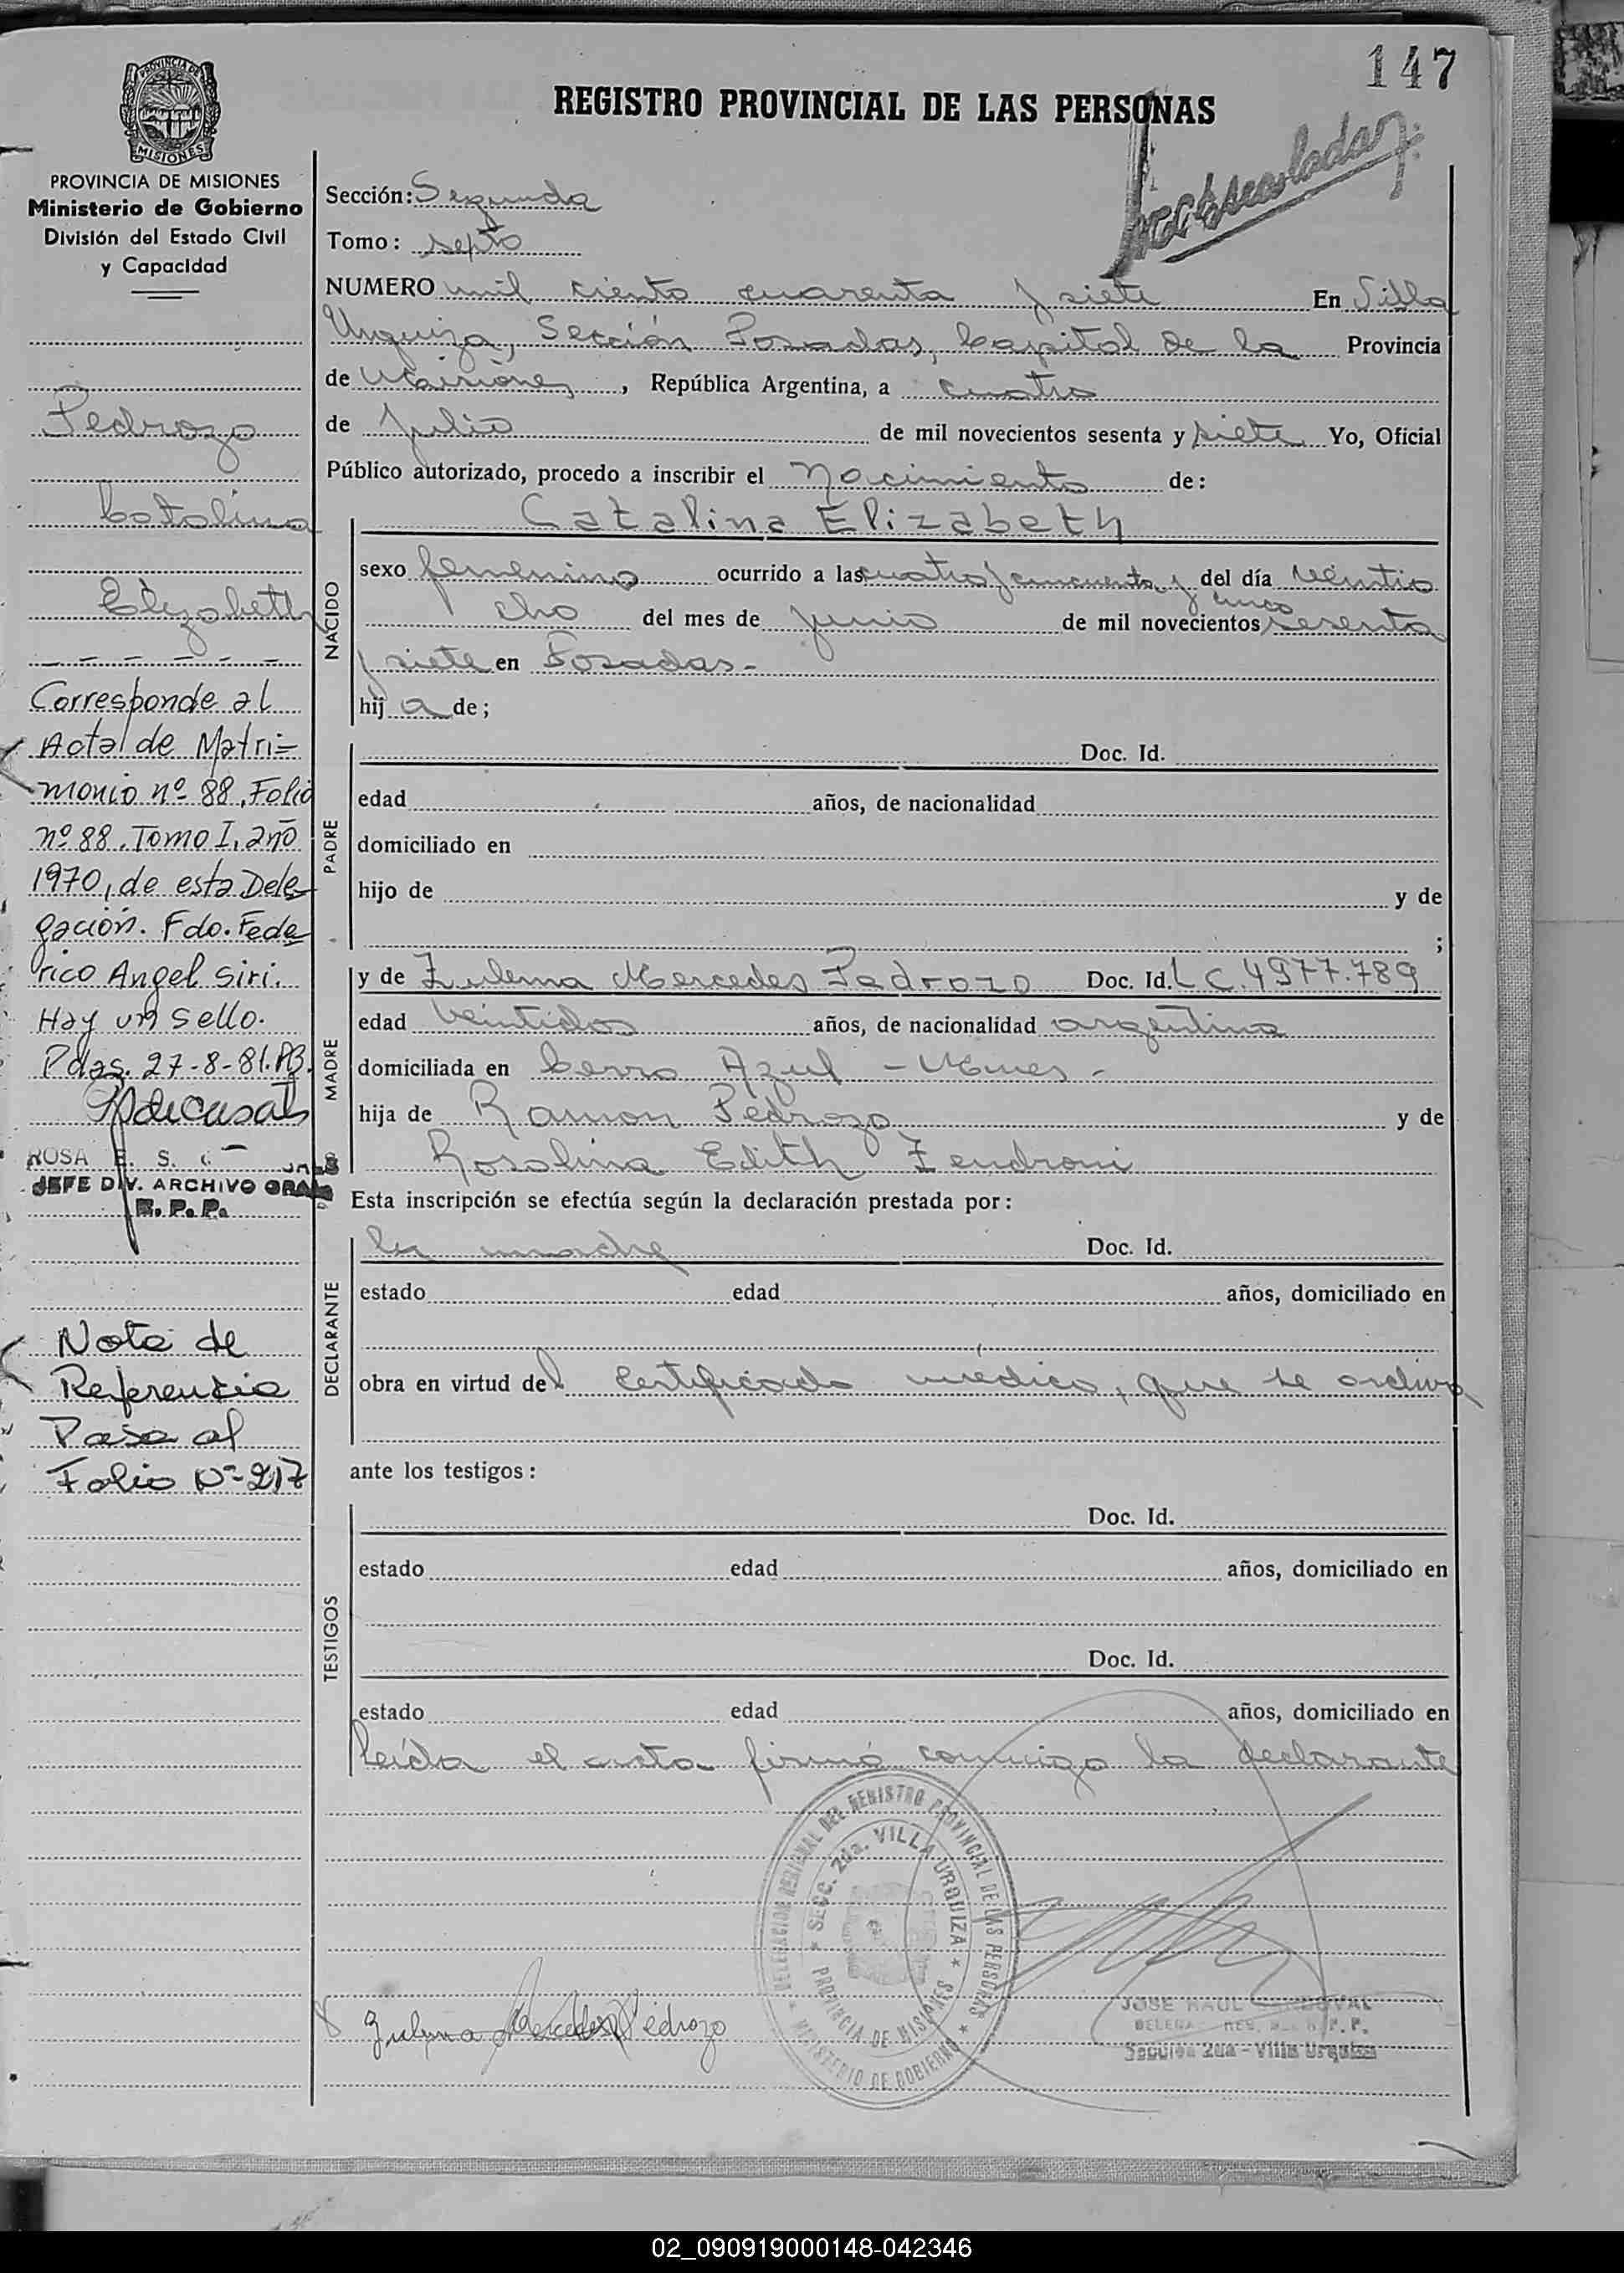 147
REGISTRO PROVINCIAL DE LAS PERSONAS
PROVINCIA DE
MISIONES
PROVINCIA DE MISIONES
Ministerio de Gobierno
División del Estado Civil
y Capacidad
Pedrozo
Catalina
Elizabeth
Corresponde al
Acta de Matri-
monio nº 88, Folio
nº 88. Tomo I, año
1970, de esta Dele-
gación. Fdo. Fede
rico Angel Siri.
Hay un sello.
Pdas. 27-8-81.
ROSA E. S.
JEFE DIV. ARCHIVO GRAL
R. P. P.
Nota de
Referencia
Pasa al
Folio Nº 217
Sección: Segunda
Tomo: septo
NUMERO mil ciento cuarenta y siete En Villa
Urquiza, Sección Posadas, Capital de la Provincia
de Misiones, República Argentina, a cuatro
de Julio de mil novecientos sesenta y siete Yo, Oficial
Público autorizado, procedo a inscribir el Nacimiento de:
NACIDO
Catalina Elizabeth
sexo femenino ocurrido a las cuatro y cincuenta y cinco del día veintio
cho del mes de junio de mil novecientos sesenta
y siete en Posadas.-
hij a de;
PADRE
Doc. Id.
edad años, de nacionalidad
domiciliado en
hijo de y de
;
MADRE
y de Zulema Mercedes Pedrozo Doc. Id. L C. 4977.789
edad veintidos años, de nacionalidad argentina
domiciliada en Cerro Azul - Mnes -
hija de Ramon Pedrozo y de
Rosalina Edith Zendroni
Esta inscripción se efectúa según la declaración prestada por:
DECLARANTE
la madre Doc. Id.
estado edad años, domiciliado en
obra en virtud del Certificado medico, que se archiva
ante los testigos:
TESTIGOS
Doc. Id.
estado edad años, domiciliado en
Doc. Id.
estado edad años, domiciliado en
Leída el acta firmó conmigo la declarante
DELEGACION REGIONAL DEL REGISTRO PROVINCIAL DE LAS PERSONAS
SECC. 2da. VILLA URQUIZA
PROVINCIA DE MISIONES
MINISTERIO DE GOBIERNO
Zulema Mercedes Pedrozo
JOSE RAUL SANDOVAL
R. P. P.
Sección 2da - Villa Urquiza
02_090919000148-042346